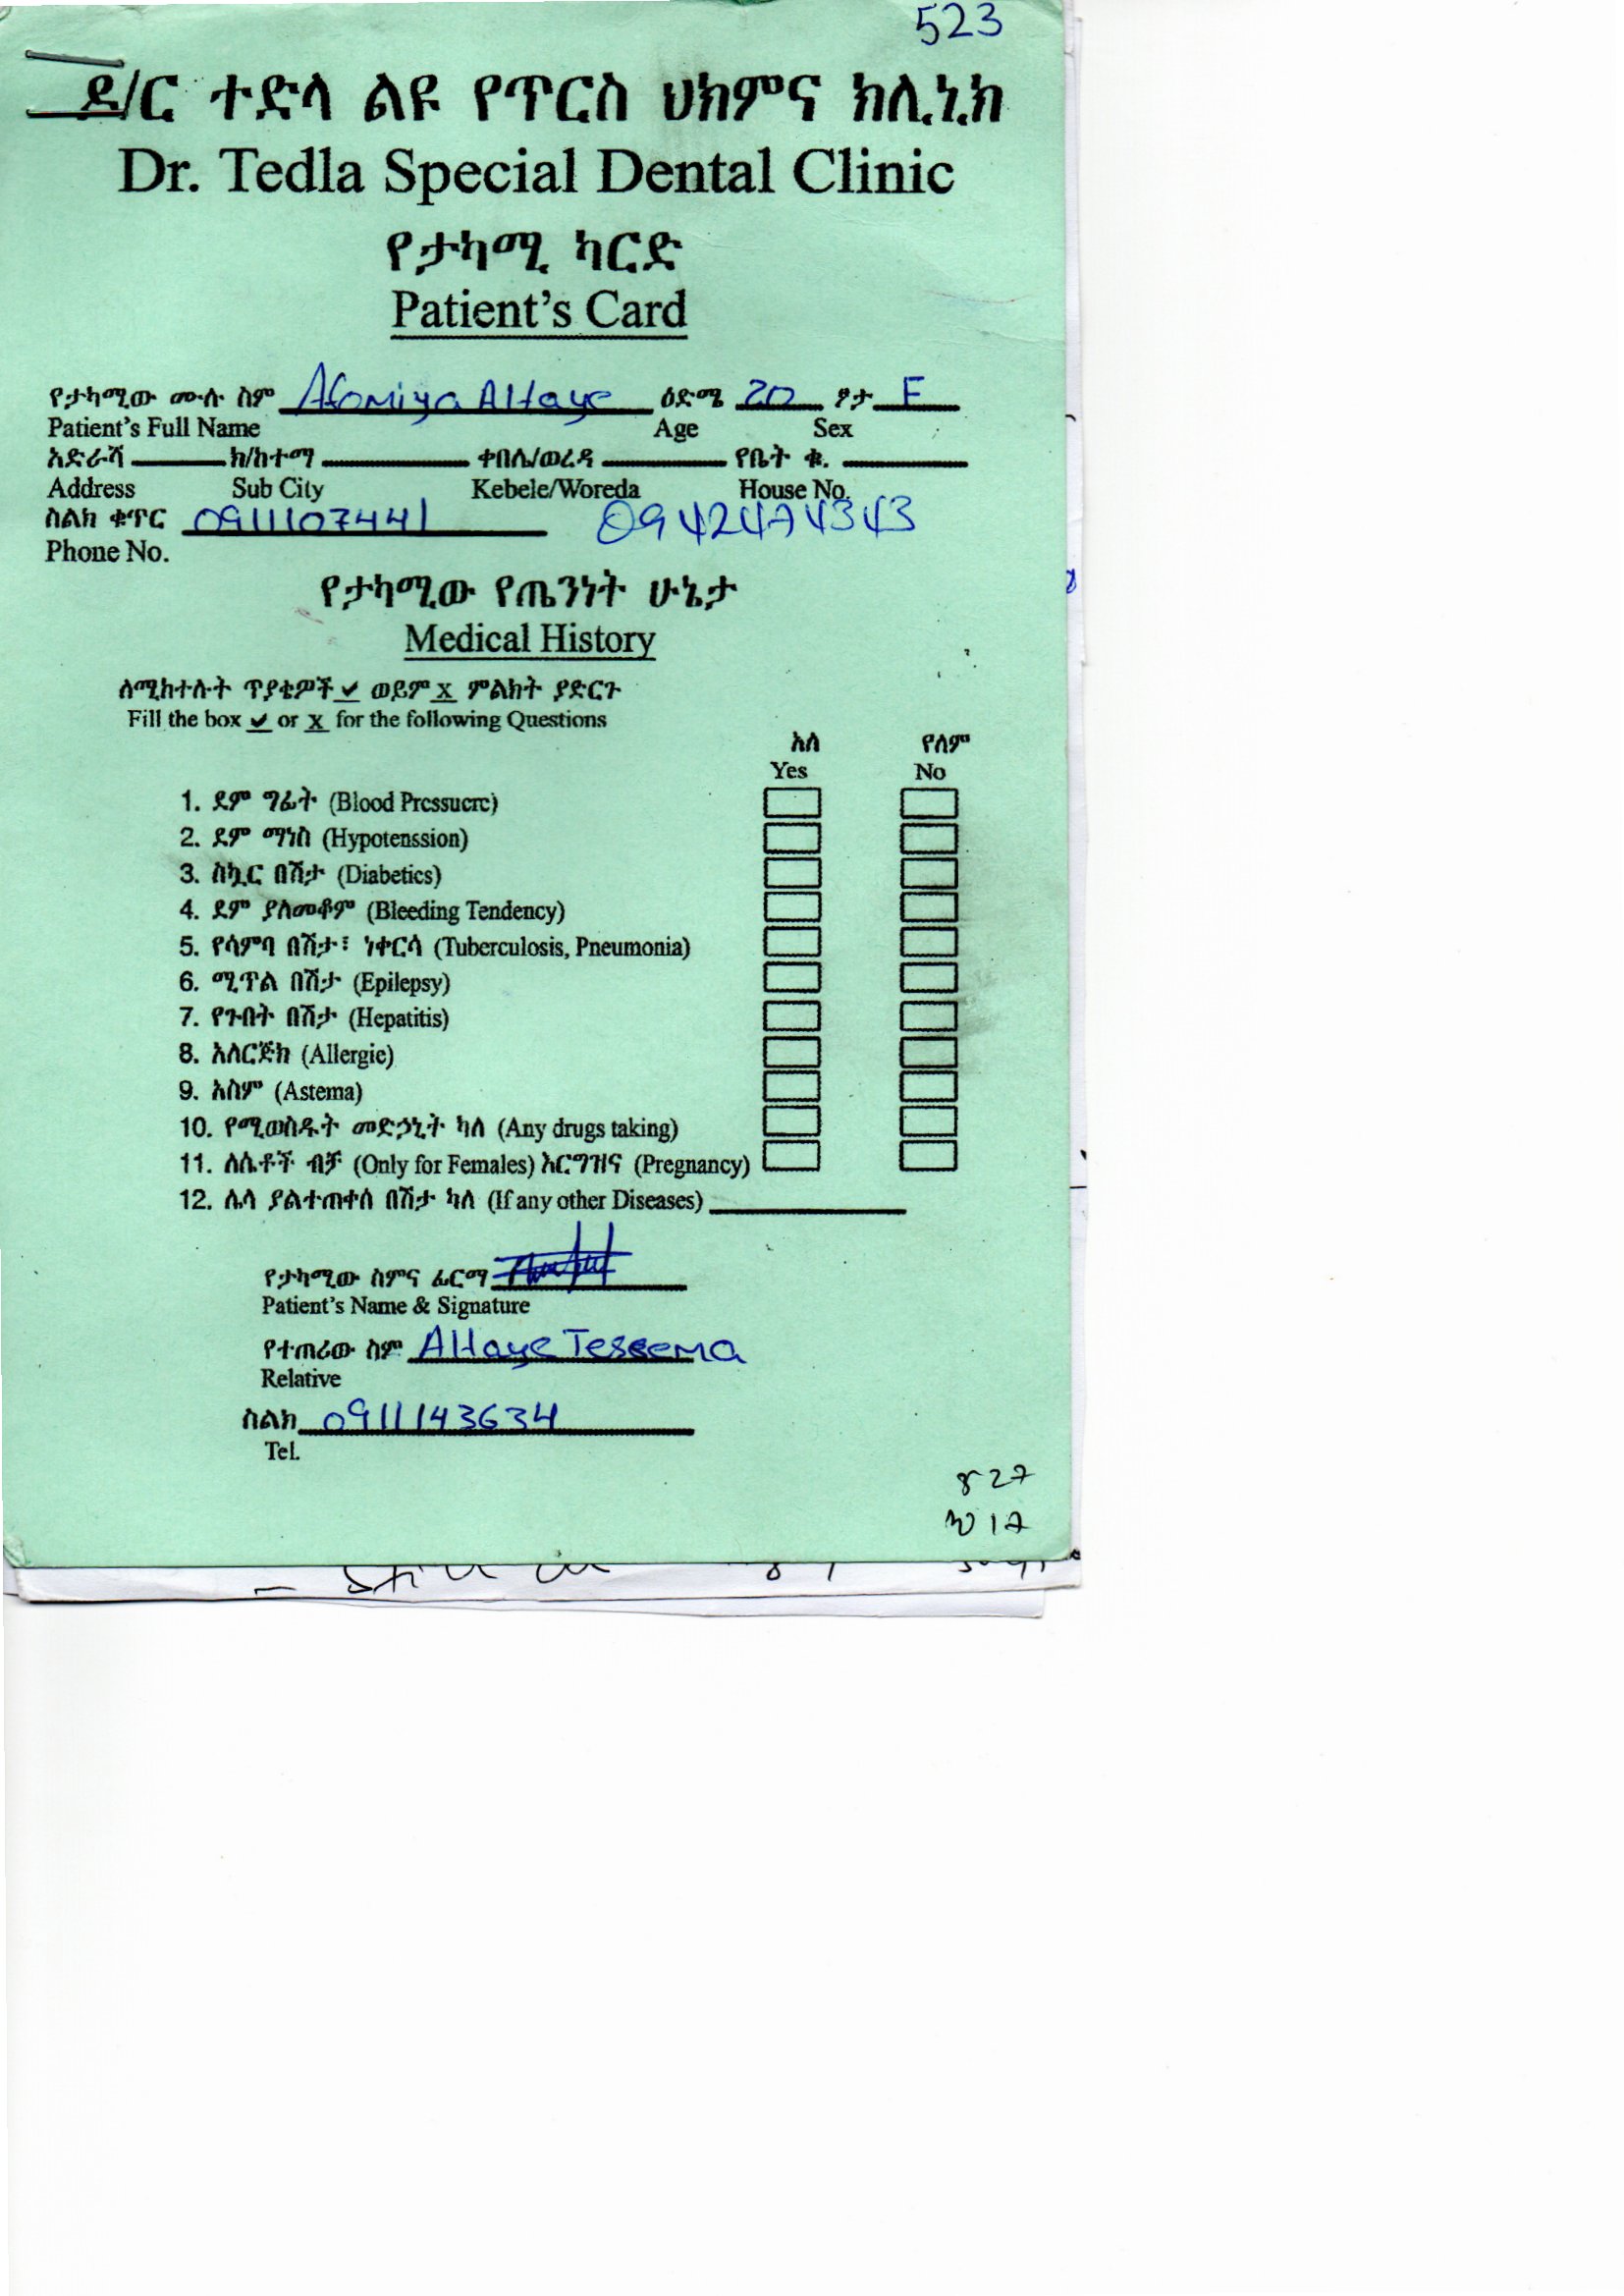 523
ዶ/ር ተድላ ልዩ የጥርስ ህክምና ክሊኒክ
Dr. Tedla Special Dental Clinic
የታካሚ ካርድ
Patient's Card
የታካሚው ሙሉ ስም Afomiya Altaye ዕድሜ 20 ፆታ F
Patient's Full Name Age Sex
አድራሻ ክ/ከተማ ቀበሌ/ወረዳ የቤት ቁ.
Address Sub City Kebele/Woreda House No.
ስልክ ቁጥር 0911107441 0942474343
Phone No.
የታካሚው የጤንነት ሁኔታ
Medical History
ለሚከተሉት ጥያቄዎች ✓ ወይም x ምልክት ያድርጉ
Fill the box ✓ or x for the following Questions
አለ የለም
Yes No
1. ደም ግፊት (Blood Pressuere)
2. ደም ማነስ (Hypotenssion)
3. ስኳር በሽታ (Diabetics)
4. ደም ያለመቆም (Bleeding Tendency)
5. የሳምባ በሽታ፣ ነቀርሳ (Tuberculosis, Pneumonia)
6. ሚጥል በሽታ (Epilepsy)
7. የጉበት በሽታ (Hepatitis)
8. አለርጅክ (Allergie)
9. አስም (Astema)
10. የሚወስዱት መድኃኒት ካለ (Any drugs taking)
11. ለሴቶች ብቻ (Only for Females) እርግዝና (Pregnancy)
12. ሌላ ያልተጠቀሰ በሽታ ካለ (If any other Diseases)
የታካሚው ስምና ፊርማ
Patient's Name & Signature
የተጠሪው ስም Altaye Tessema
Relative
ስልክ 0911143634
Tel.
827
17